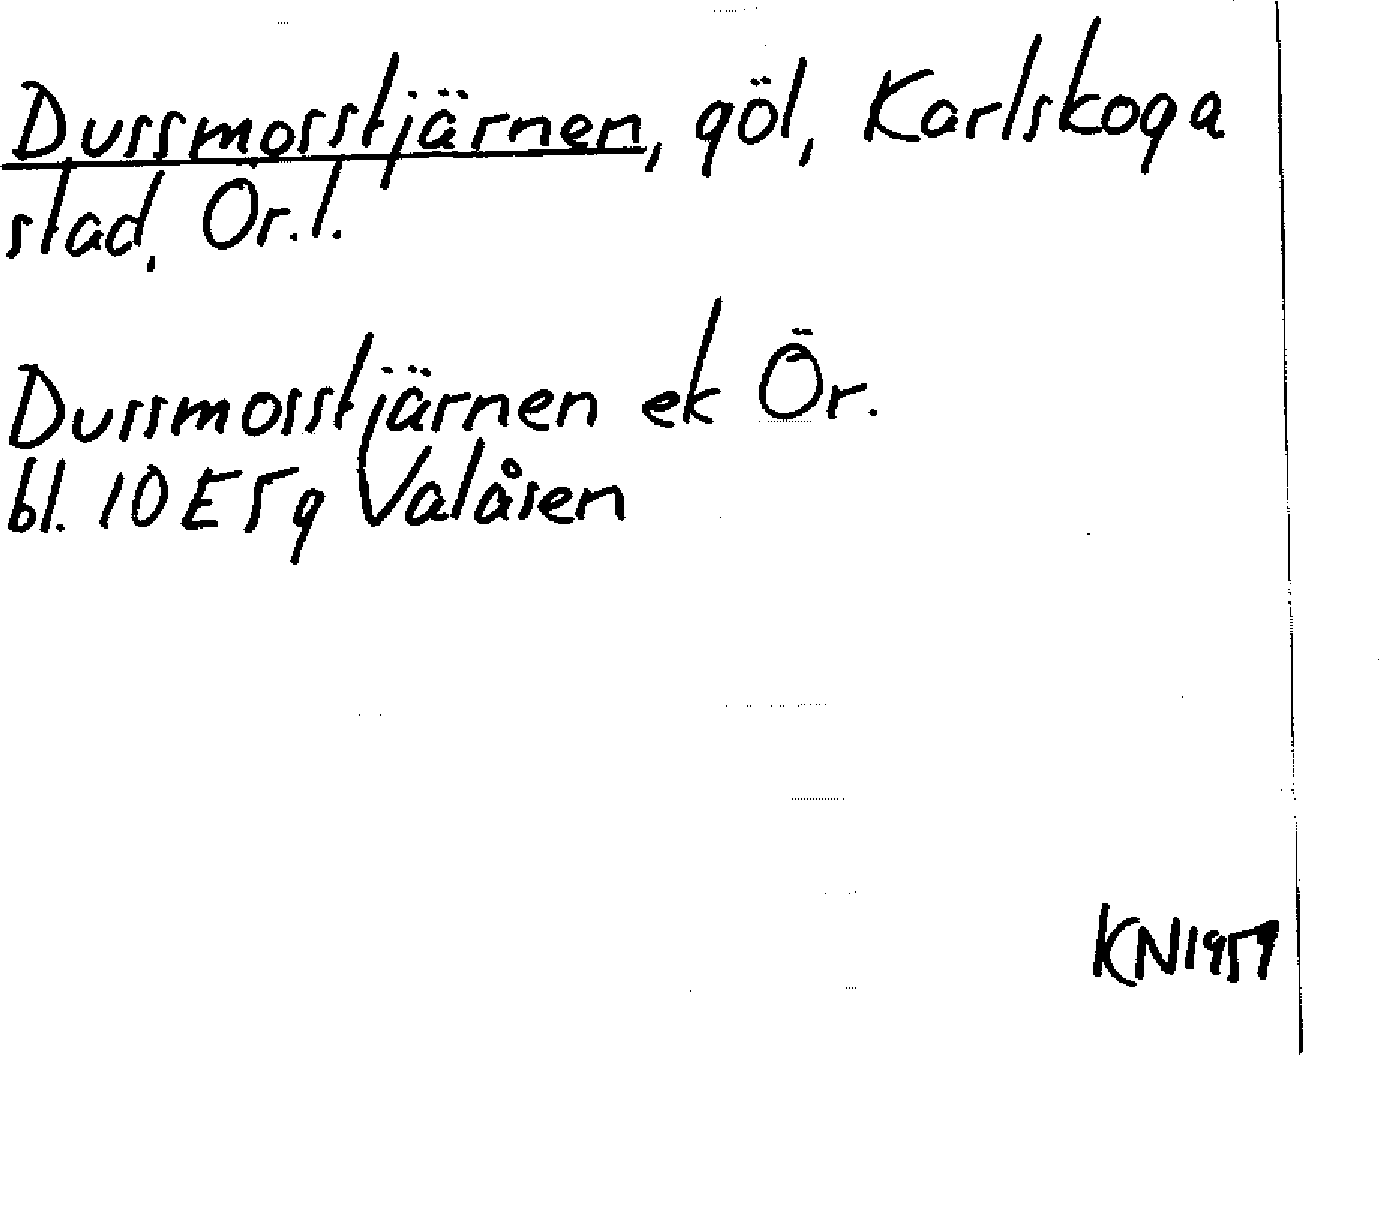 Dussmosstjärnen, göl, Karlskoga
stad, Ör.l.
Dussmosstjärnen ek Ör.
bl. 10E5g Valåsen
KN1959